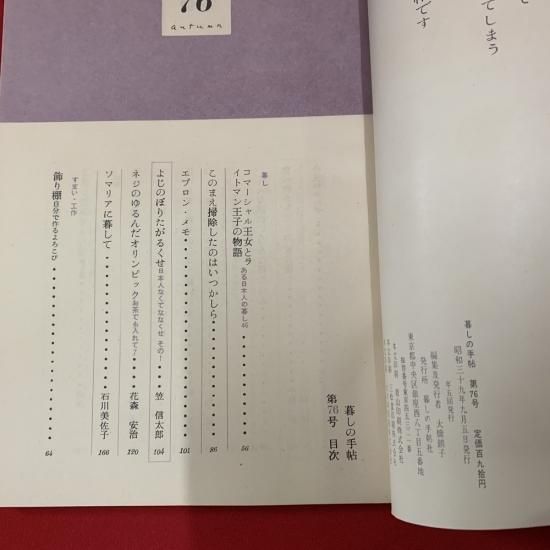 76
autumn
暮しの手帖
第76号 目次
暮し
コマーシャル王女とラ
イトマン王子の物語 ある日本人の暮し46 56
このまえ掃除したのはいつかしら 86
エプロン・メモ 101
よじのぼりたがるくせ 日本人なくてななくせ その1 笠 信太郎 104
ネジのゆるんだオリンピック お茶でも入れて7 花森 安治 120
ソマリアに暮して 石川美佐子 166
すまい・工作
飾り棚 自分で作るよろこび 64
てしまう
です
暮しの手帖 第76号 定価百九十円
昭和三十九年九月五日発行
年五回発行
編集及発行者 大橋鎭子
発行所 暮しの手帖社
東京都中央区銀座西八丁目五番地